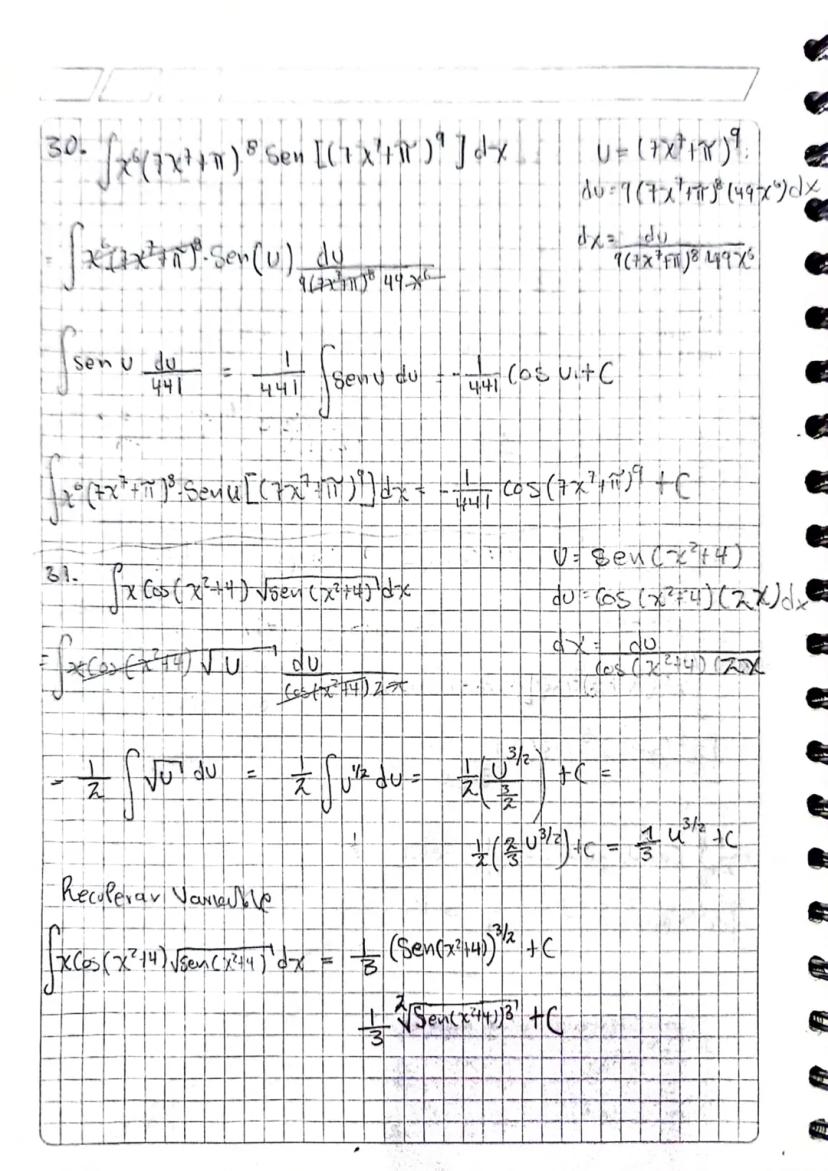 30. ∫x⁶(7x⁷+π)⁸ Sen [(7x⁷+π)⁹] dx
U = (7x⁷+π)⁹.
du = 9(7x⁷+π)⁸(49x⁶)dx
dx = du / 9(7x⁷+π)⁸ 49x⁶
= ∫x⁶(7x⁷+π)⁸ · Sen(U) du / 9(7x⁷+π)⁸ 49x⁶
∫sen U du/441 = 1/441 ∫Sen U du = -1/441 Cos U + C
∫x⁶(7x⁷+π)⁸·Sen u[(7x⁷+π)⁹]dx = -1/441 cos(7x⁷+π)⁹ + C
31. ∫x Cos(x²+4) √sen(x²+4) dx
U = Sen(x²+4)
du = Cos(x²+4)(2x)dx
dx = du / Cos(x²+4)(2x
= ∫x Cos(x²+4) √U du / Cos(x²+4)2x
= 1/2 ∫√U du = 1/2 ∫U^1/2 du = 1/2 (U^3/2 / 3/2) + C =
1/2 (2/3 U^3/2) + C = 1/3 U^3/2 + C
Recuperar Variable
∫x Cos(x²+4) √sen(x²+4) dx = 1/3 (Sen(x²+4))^3/2 + C
1/3 ²√Sen(x²+4))³ + C